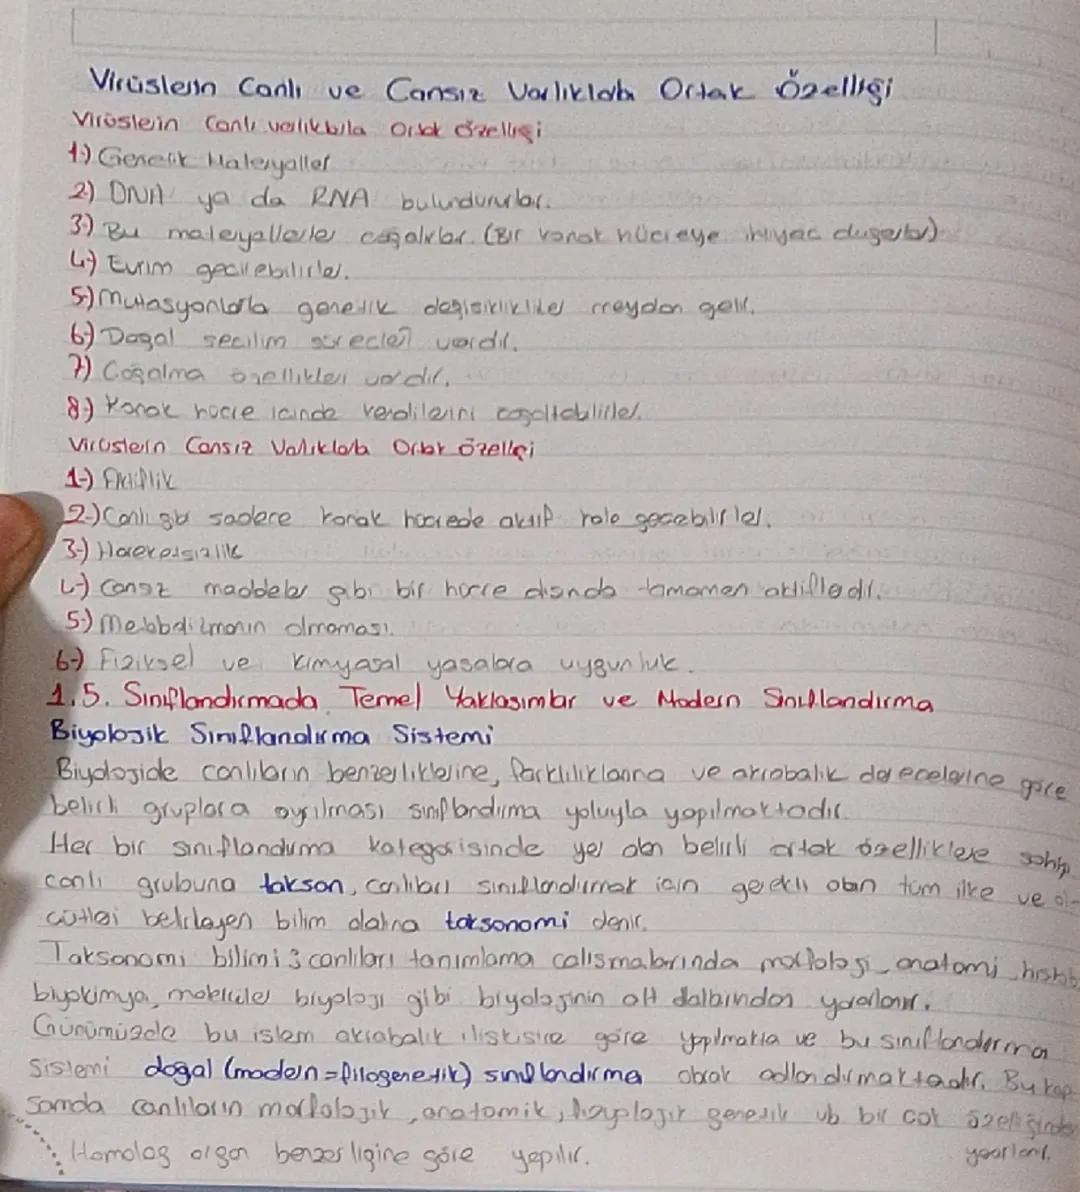 Virüslerin Canlı ve Cansız Varlıklarla Ortak Özelliği
Virüslerin Canlı varlıklarla Ortak özelliği
1-) Genetik Materyaller
2-) DNA ya da RNA bulundururlar.
3-) Bu materyallerle çoğalırlar. (Bir konak hücreye ihtiyaç duyarlar)
4-) Evrim geçirebilirler.
5-) Mutasyonlarla genetik değişiklikliler meydan gelir.
6-) Dogal secilim süreçleri vardır.
7-) Çoğalma özellikleri vardır.
8-) Konak hücre icinde kendilerini cogaltabilirler.
Virüslerin Cansız Varlıklarla Ortak özelliği
1-) Aktiflik
2-) Canlı gibi sadece konak hücrede aktif role geçebilirler.
3-) Hareketsizlik
4-) Cansız maddeler gibi bir hücre dışında tamamen aktiflerdir.
5-) olmaması.
6-) Fiziksel ve Kimyasal yasalara uygunluk.
1.5. Sınıflandırmada Temel Yaklaşımlar ve Modern Sınıflandırma
Biyolojik Sınıflandırma Sistemi
Biyolojide canlıların benzerliklerine, farklılıklarına ve akrabalık derecelerine göre
belirli gruplara ayrılması sınıflandırma yoluyla yapılmaktadır.
Her bir sınıflandırma kategorisinde yer alan belirli ortak özelliklere sahip
canlı grubuna takson, canlıları sınıflandırmak için gerekli olan tüm ilke ve öl-
çütleri belirlayen bilim dalına taksonomi denir.
Taksonomi bilimi; canlıları tanımlama calışmalarında morfoloji, anatomi,
biyokimya, moleküler biyoloji gibi biyolojinin alt dallarından yararlanır.
Günümüzde bu islem akrabalık ilişkisine göre yapılmakta ve bu sınıflandırma
Sistemi dogal (modern = filogenetik) sınıflandırma olarak adlandırmaktadır. Bu kap-
samda canlıların morfolojik, anatomik, genetik vb. bir cok özelliğinden
yararlanır.
Homolog organ benzerligine göre yapılır.